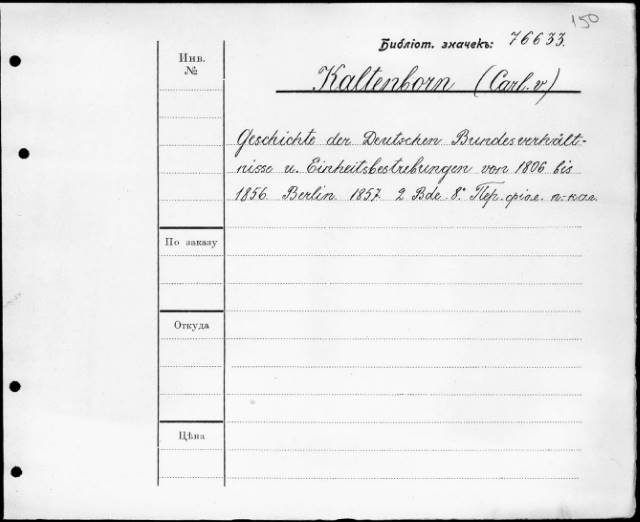 150
Библіот. значекъ: 76633.
Инв.
№
Kaltenborn (Carl. v.)
Geschichte der Deutschen Bundesverhält-
nisse u. Einheitsbestrebungen von 1806 bis
1856. Berlin. 1857. 2 Bde. 8°. Пер. фіол. п.-кол.
По заказу
Откуда
Цѣна